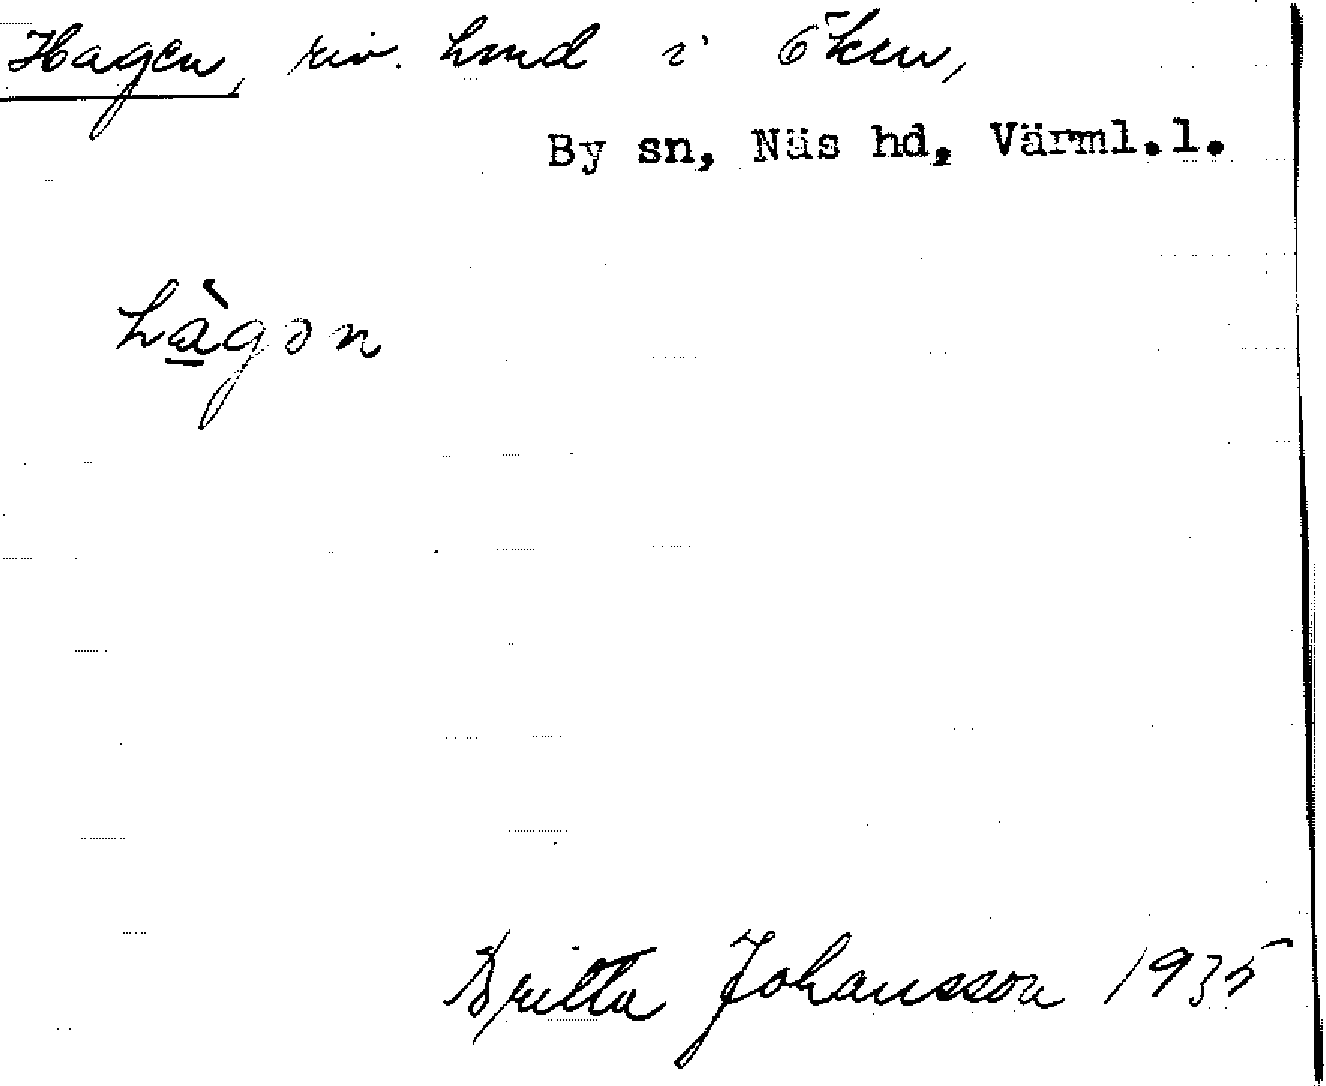 Hagen, riv. hmd i Öken,
By sn, Näs hd, Värml.l.
hàgən
Britta Johansson 1935